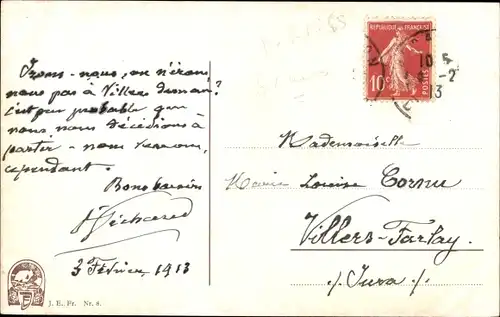 Irons-nous, ou n'irons
nous pas à Villers demain?
C'est peu probable que
nous nous décidions à
partir - nous verrons,
cependant.
Bons baisers
3 Février 1913
J. E. Fr. Nr. 8.
RÉPUBLIQUE FRANÇAISE
10c
POSTES
10
-2
13
Mademoiselle
Marie Louise Cornu
Villers-Farlay.
Jura